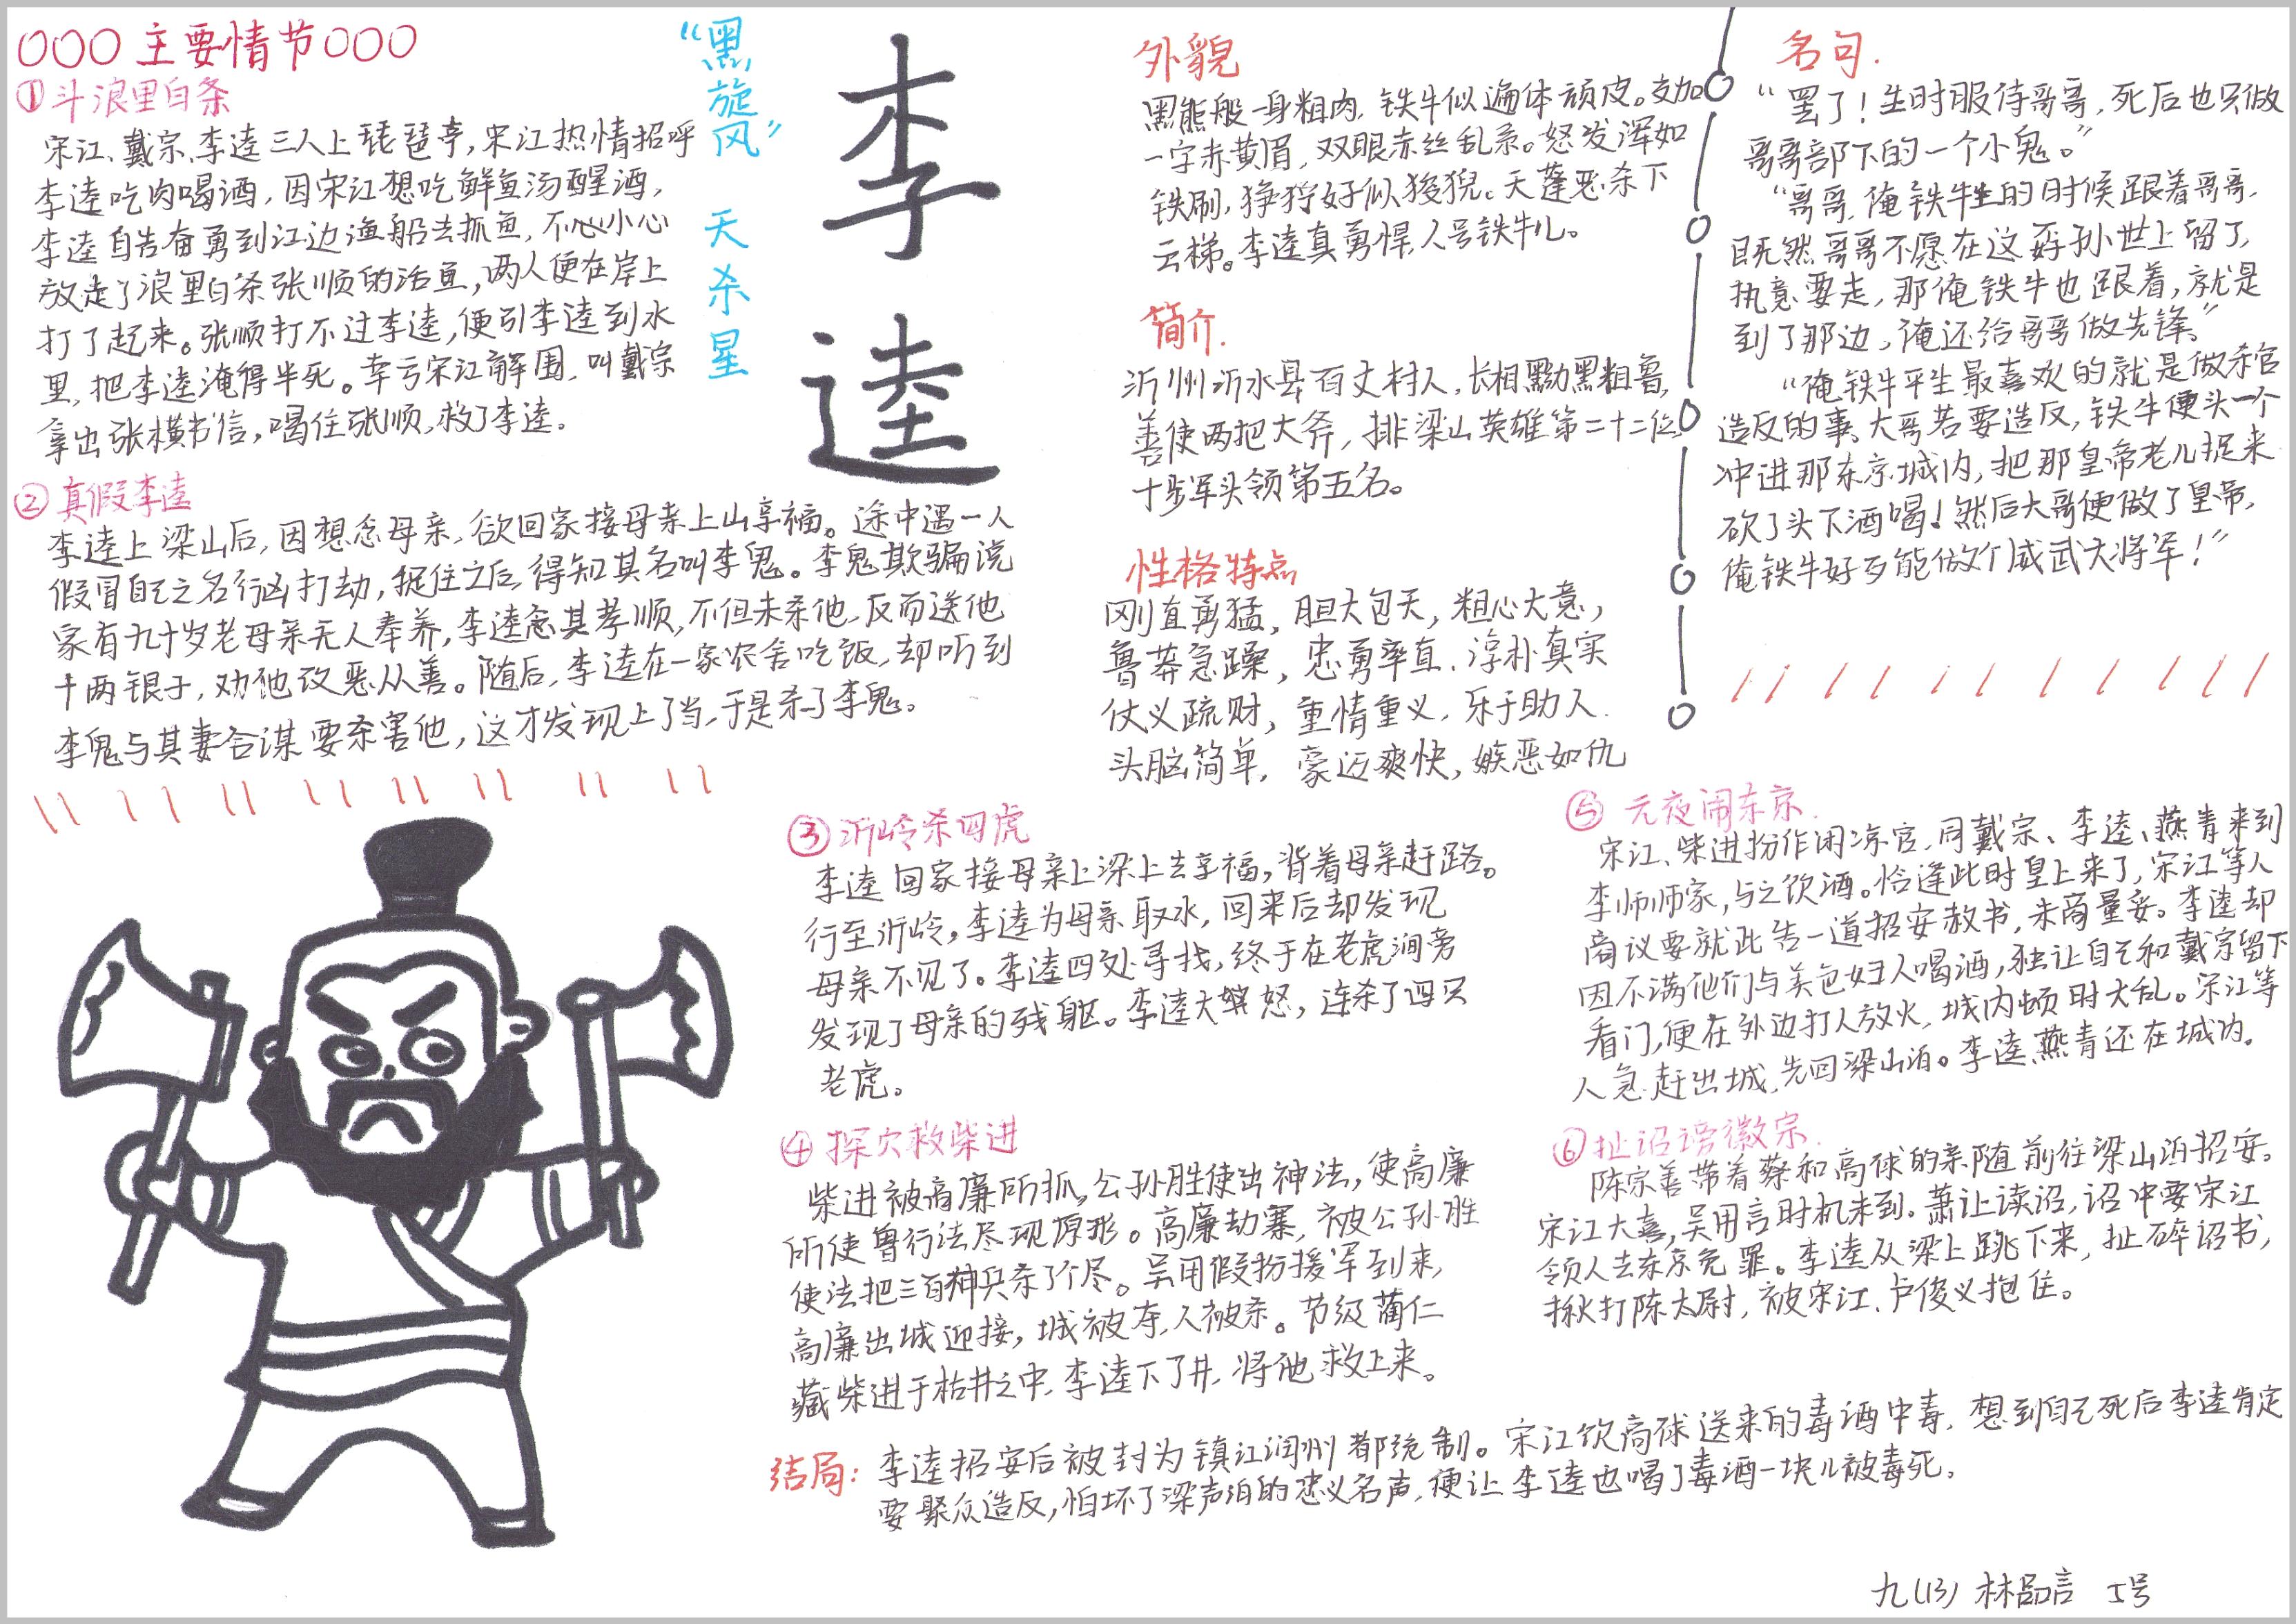 主要情节
①斗浪里白条
宋江、戴宗、李逵三人上琵琶亭,宋江热情招呼
李逵吃肉喝酒,因宋江想吃鲜鱼汤醒酒,
李逵自告奋勇到江边渔船去抓鱼,不心小心
放走了浪里白条张顺的活鱼,两人便在岸上
打了起来。张顺打不过李逵,便引李逵到水
里,把李逵淹得半死。幸亏宋江解围,叫戴宗
拿出张横书信,喝住张顺,救了李逵。
②真假李逵
李逵上梁山后,因想念母亲,欲回家接母亲上山享福。途中遇一人
假冒自己之名行凶打劫,捉住之后,得知其名叫李鬼。李鬼欺骗说
家有九十岁老母亲无人奉养,李逵念其孝顺,不但未杀他,反而送他
十两银子,劝他改恶从善。随后,李逵在一家农舍吃饭,却听到
李鬼与其妻合谋要杀害他,这才发现上了当,于是杀了李鬼。
“黑旋风” 天杀星
李逵
外貌
黑熊般一身粗肉,铁牛似遍体顽皮。交加
一字赤黄眉,双眼赤丝乱系。怒发浑如
铁刷,狰狞好似狻猊。天蓬恶杀下
云梯。李逵真勇悍,人号铁牛儿。
简介.
沂州沂水县百丈村人,长相黝黑粗鲁,
善使两把大斧,排梁山英雄第二十二位,
十步军头领第五名。
性格特点
刚直勇猛,胆大包天,粗心大意,
鲁莽急躁,忠勇率直,淳朴真实
仗义疏财,重情重义,乐于助人.
头脑简单,豪迈爽快,嫉恶如仇
名句.
“罢了!生时服侍哥哥,死后也只做
哥哥部下的一个小鬼。”
“哥哥,俺铁牛生的时候跟着哥哥,
既然哥哥不愿在这孬孙世上留了,
执意要走,那俺铁牛也跟着,就是
到了那边,俺还给哥哥做先锋。”
“俺铁牛平生最喜欢的就是做杀官
造反的事。大哥若要造反,铁牛便头一个
冲进那东京城内,把那皇帝老儿捉来
砍了头下酒喝!然后大哥便做了皇帝,
俺铁牛好歹能做个威武大将军!”
③沂岭杀四虎
李逵回家接母亲上梁上去享福,背着母亲赶路。
行至沂岭,李逵为母亲取水,回来后却发现
母亲不见了。李逵四处寻找,终于在老虎涧旁
发现了母亲的残躯。李逵大怒,连杀了四只
老虎。
④探穴救柴进
柴进被高廉所抓,公孙胜使出神法,使高廉
所使兽行法尽现原形。高廉劫寨,被公孙胜
使法把三百神兵杀了个尽。吴用假扮援军到来,
高廉出城迎接,城被夺,人被杀。节级蔺仁
藏柴进于枯井之中,李逵下了井,将他救上来。
⑤元夜闹东京.
宋江、柴进扮作闲凉官,同戴宗、李逵、燕青来到
李师师家,与之饮酒。恰逢此时皇上来了,宋江等人
商议要就此告一道招安赦书,未商量妥。李逵却
因不满他们与美色妇人喝酒,独让自己和戴宗留下
看门,便在外边打人放火,城内顿时大乱。宋江等
人急赶出城,先回梁山泊。李逵、燕青还在城内。
⑥扯诏谤徽宗.
陈宗善带着蔡和高俅的亲随前往梁山泊招安。
宋江大喜,吴用言时机未到。萧让读诏,诏中要宋江
领人去东京免罪。李逵从梁上跳下来,扯碎诏书,
揪打陈太尉,被宋江、卢俊义抱住。
结局:李逵招安后被封为镇江润州都统制。宋江饮高俅送来的毒酒中毒,想到自己死后李逵肯定
要聚众造反,怕坏了梁声泊的忠义名声,便让李逵也喝了毒酒一块儿被毒死。
九(13) 林品言 5号